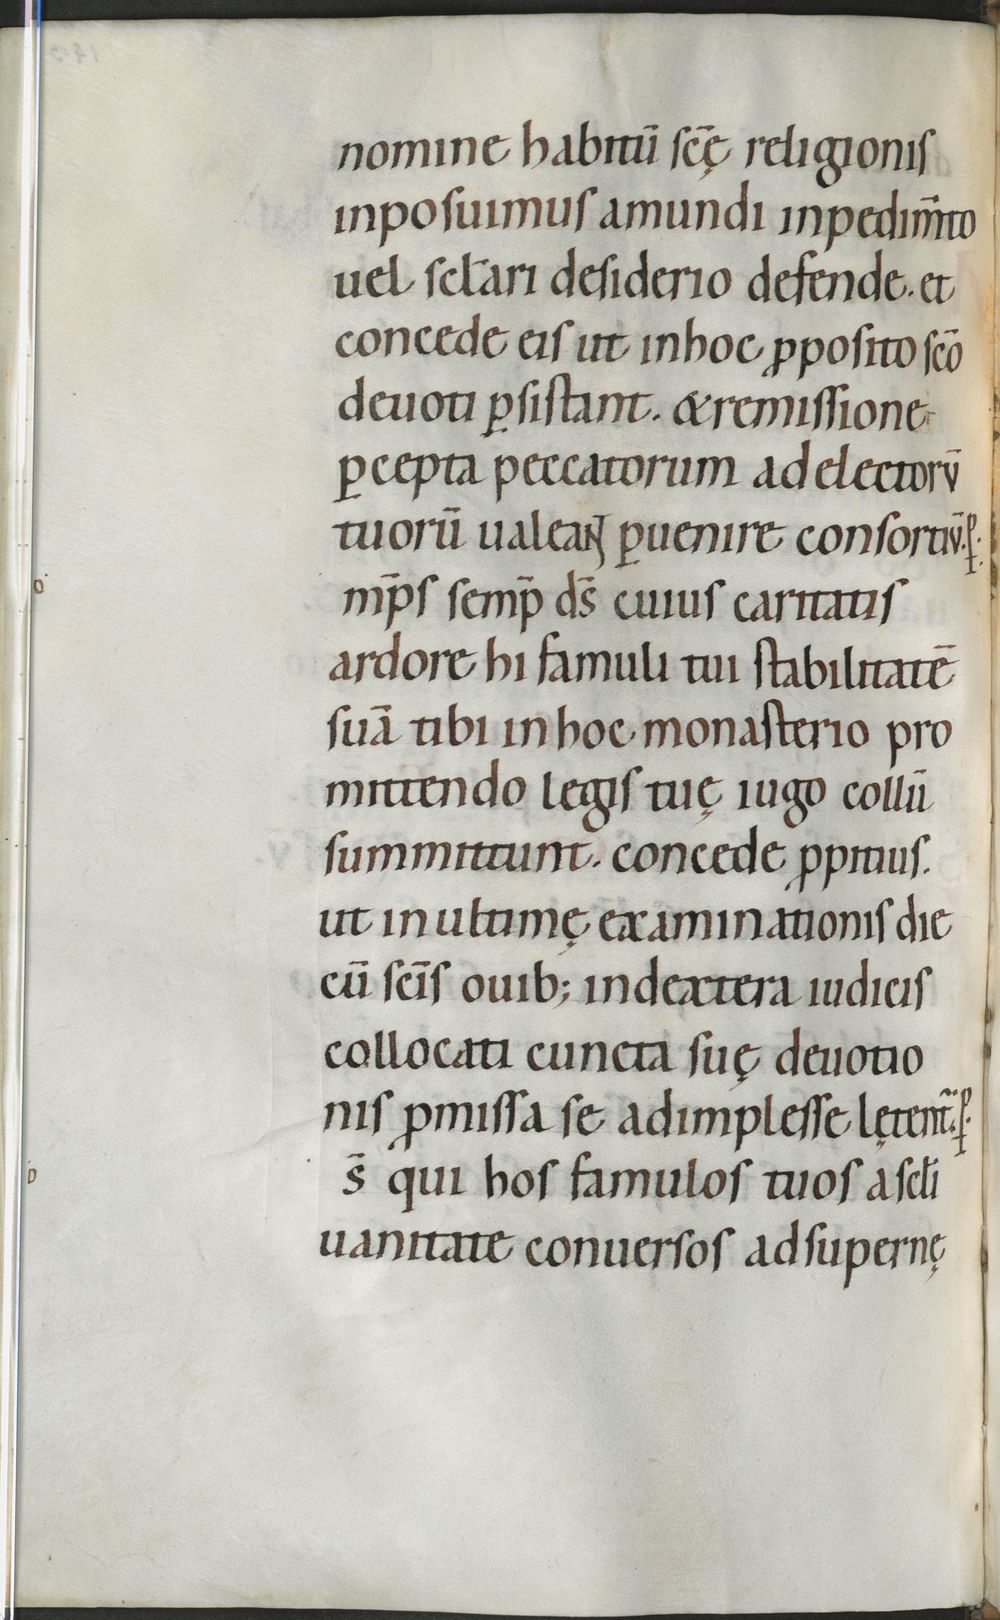 nomine habitū sc̄ę religionis
inposuimus amundi inpedim̄to
uel scl̄ari desiderio defende. et
concede eis ut inhoc ꝓposito sc̄o
deuoti ꝑsistant. & remissione
ꝑcepta peccatorum ad electorū
tuorū ualeant ꝑuenire consortiū. ꝑ:
o m̄ps semꝑ ds̄ cuius caritatis
ardore hi famuli tui stabilitatē
suā tibi in hoc monasterio pro
mittendo legis tuę iugo collū
summittunt. concede ꝓpitius.
ut in ultimę examinationis die
cū sc̄is ouib; indextera iudicis
collocati cuncta suę deuotio
nis ꝓmissa se adimplesse lętent᷑. ꝑ:
D s̄ qui hos famulos tuos a scl̄i
uanitate conuersos ad supernę